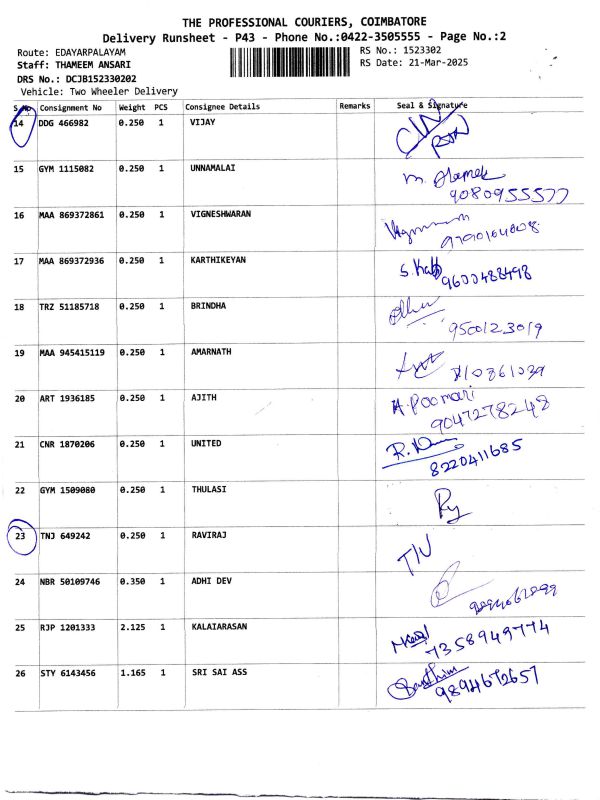 THE PROFESSIONAL COURIERS, COIMBATORE
Delivery Runsheet - P43 - Phone No.:0422-3505555 - Page No.:2
Route: EDAYARPALAYAM RS No.: 1523302
Staff: THAMEEM ANSARI RS Date: 21-Mar-2025
DRS No.: DCJB152330202
Vehicle: Two Wheeler Delivery
S.No Consignment No Weight PCS Consignee Details Remarks Seal & Signature
14 DDG 466982 0.250 1 VIJAY
15 GYM 1115082 0.250 1 UNNAMALAI
9080955577
16 MAA 869372861 0.250 1 VIGNESHWARAN
17 MAA 869372936 0.250 1 KARTHIKEYAN
9600488498
18 TRZ 51185718 0.250 1 BRINDHA
9500123019
19 MAA 945415119 0.250 1 AMARNATH
20 ART 1936185 0.250 1 AJITH A. Poomari
9047278248
21 CNR 1870206 0.250 1 UNITED
8220411685
22 GYM 1509080 0.250 1 THULASI
23 TNJ 649242 0.250 1 RAVIRAJ
24 NBR 50109746 0.350 1 ADHI DEV
25 RJP 1201333 2.125 1 KALAIARASAN
7358949774
26 STY 6143456 1.165 1 SRI SAI ASS
9894672657